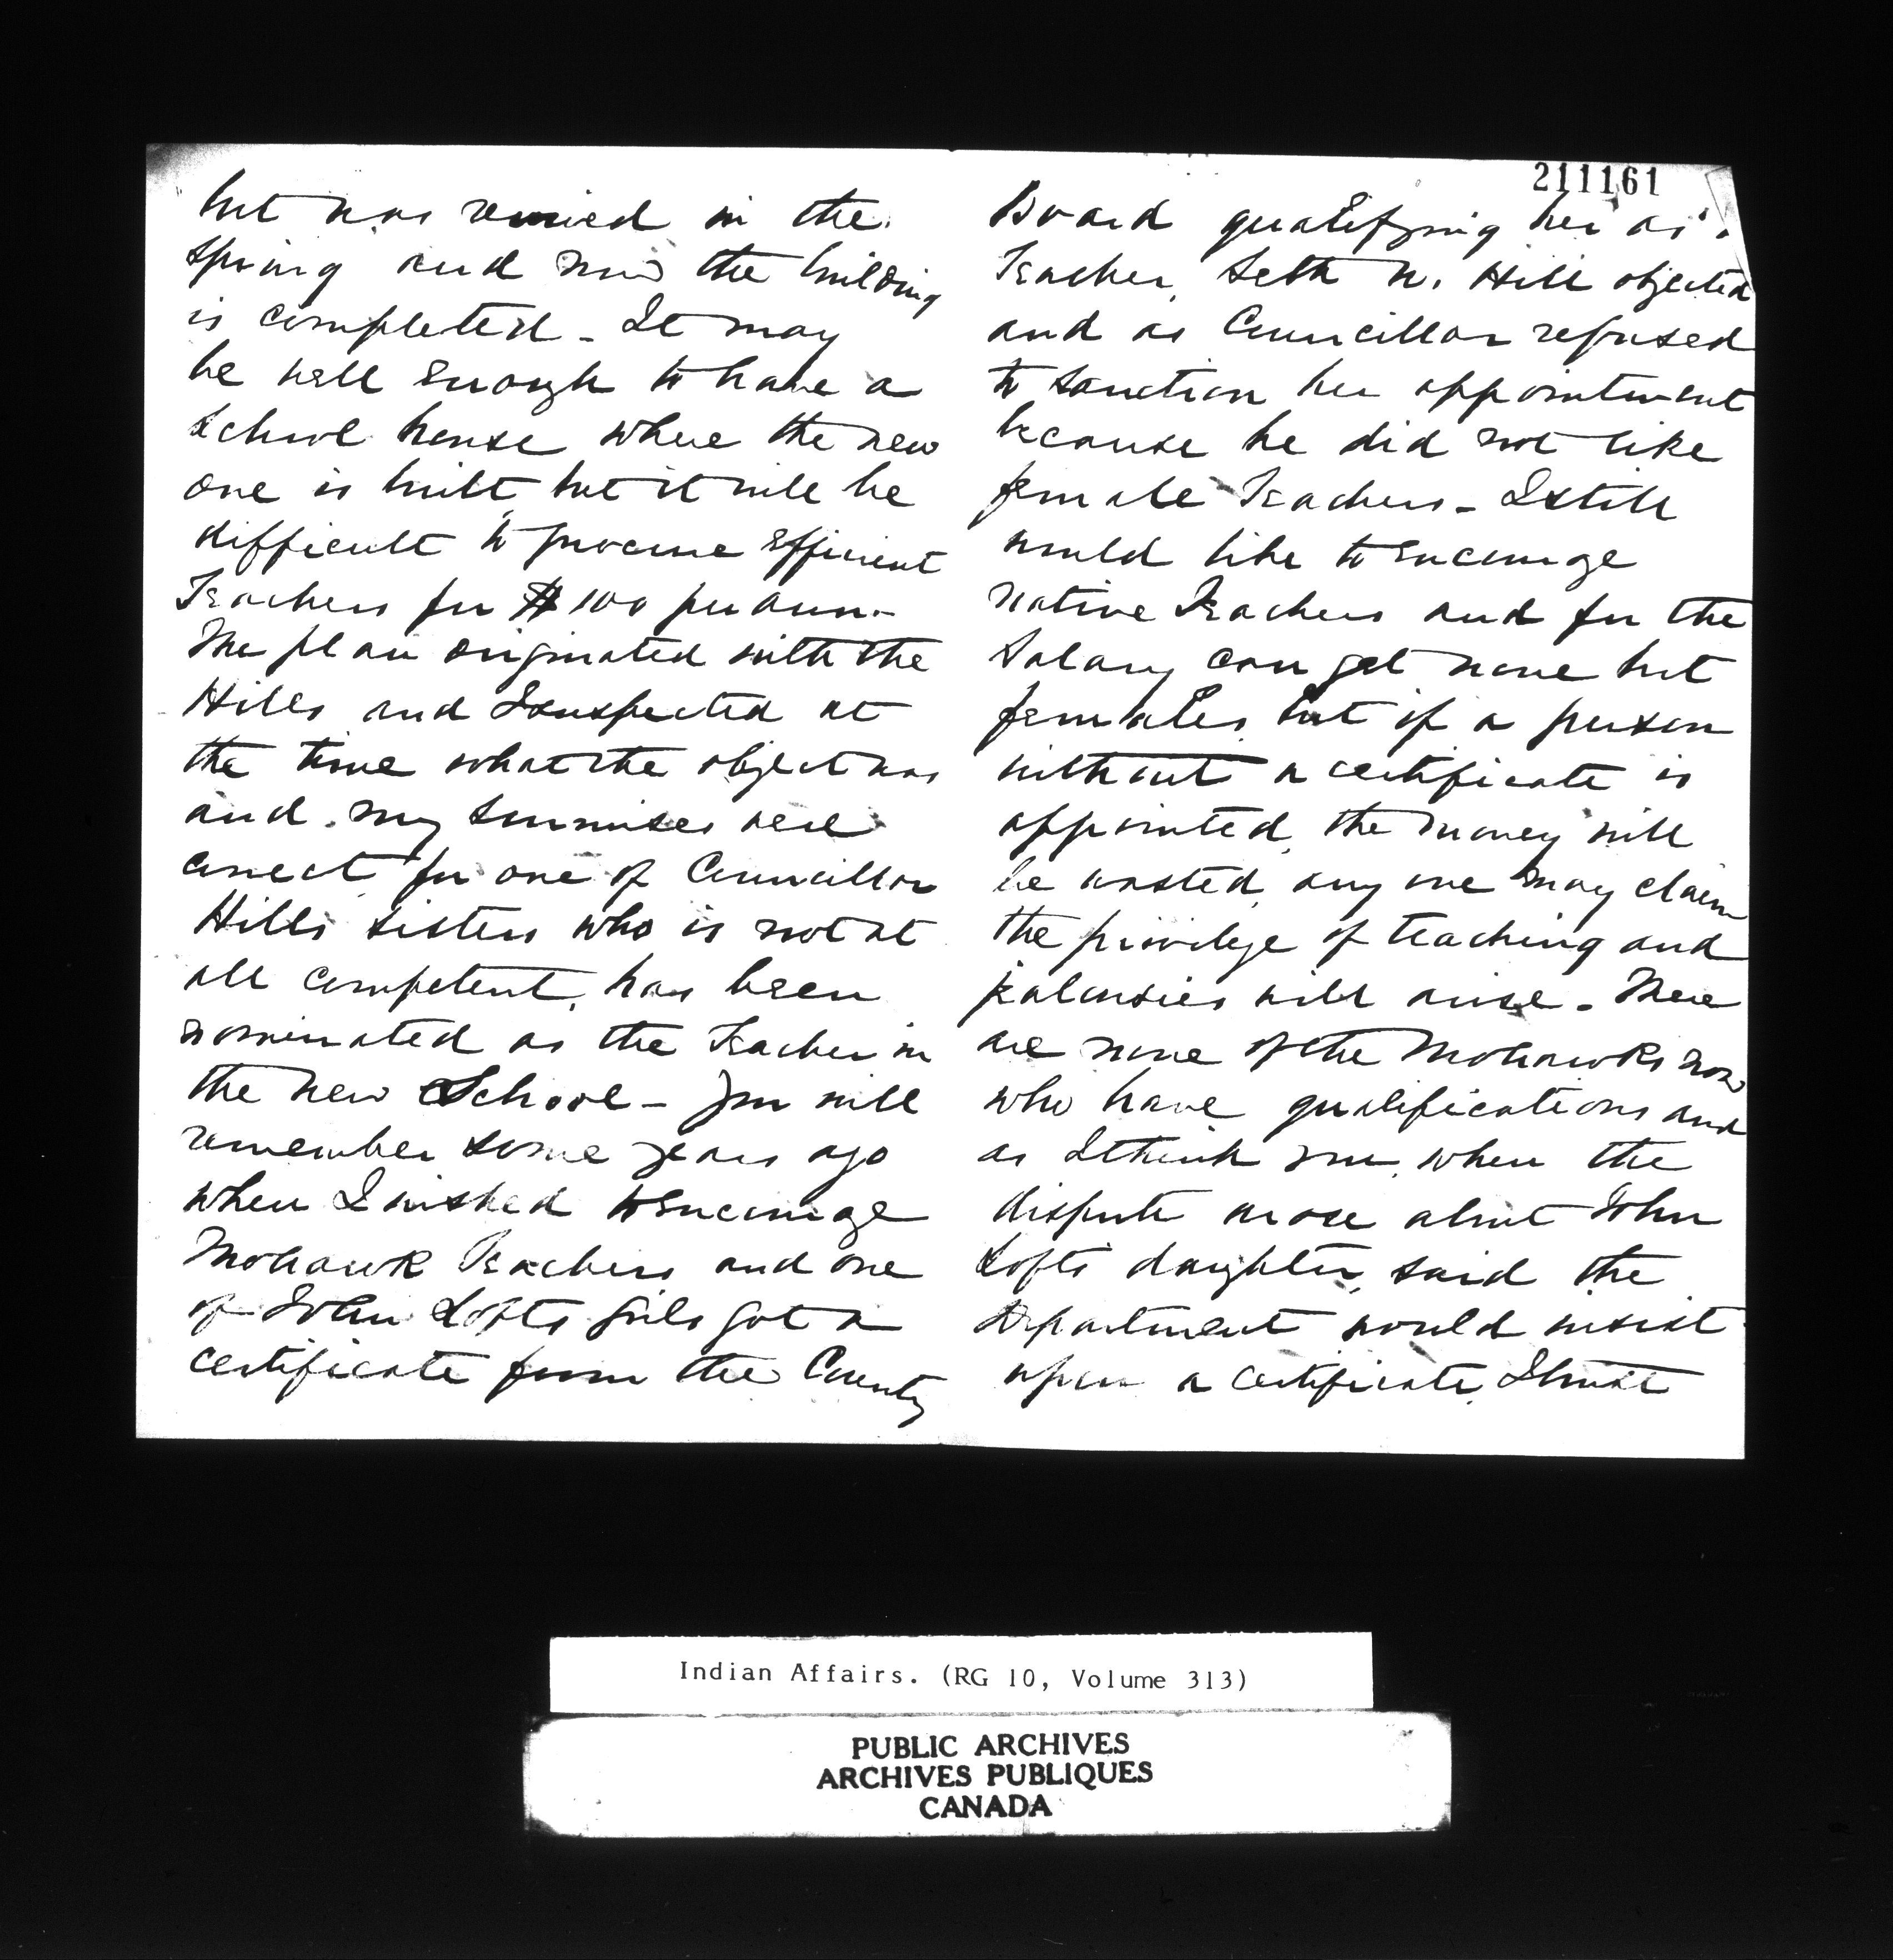 211161
but was revived in the
spring and now the building
is completed - It may
be well enough to have a
School house where the new
one is built, but it will be
difficult to procure efficient
Teachers for $100 per ann.
The plan originated with the
Hills and I suspected at
the time what the object was
and my surmises were
correct, for one of Councillor
Hills sisters who is not at
all competent, has been
nominated as the Teacher in
the new School - You will
remember some years ago
when I wished to encourage
Mohawk Teachers and one
of John Lofts girls got a
certificate from the County
Board qualifying her as
Teacher, Seth W. Hill objected
and as Councillor refused
to sanction her appointment
because he did not like
female Teachers - I still
would like to encourage
native Teachers and for the
Salary can get none but
females, but if a person
without a certificate is
appointed, the money will
be wasted, any one may claim
the privilege of teaching and
jealousies will arise. There
are none of the Mohawks now
who have qualifications and
as I think you, when the
dispute arose about John
Lofts daughter, said the
Department would insist
upon a certificate, I trust
Indian Affairs. (RG 10, Volume 313)
PUBLIC ARCHIVES
ARCHIVES PUBLIQUES
CANADA